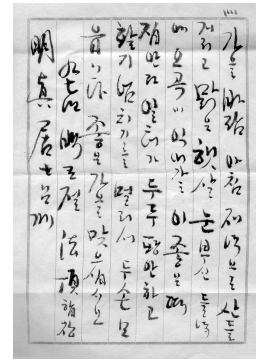 가을 바람 아침 저녁으로 산들
거리고 맑은 햇살 눈부신 들녘
에 오곡이 익어가는 이 좋은 때
집안과 일터가 두루 편안하고
활기 넘치기를 멀리서 두손 모
읍니다 좋은 가을 맞으십시오
백로절 法頂 합장
明眞居士님께